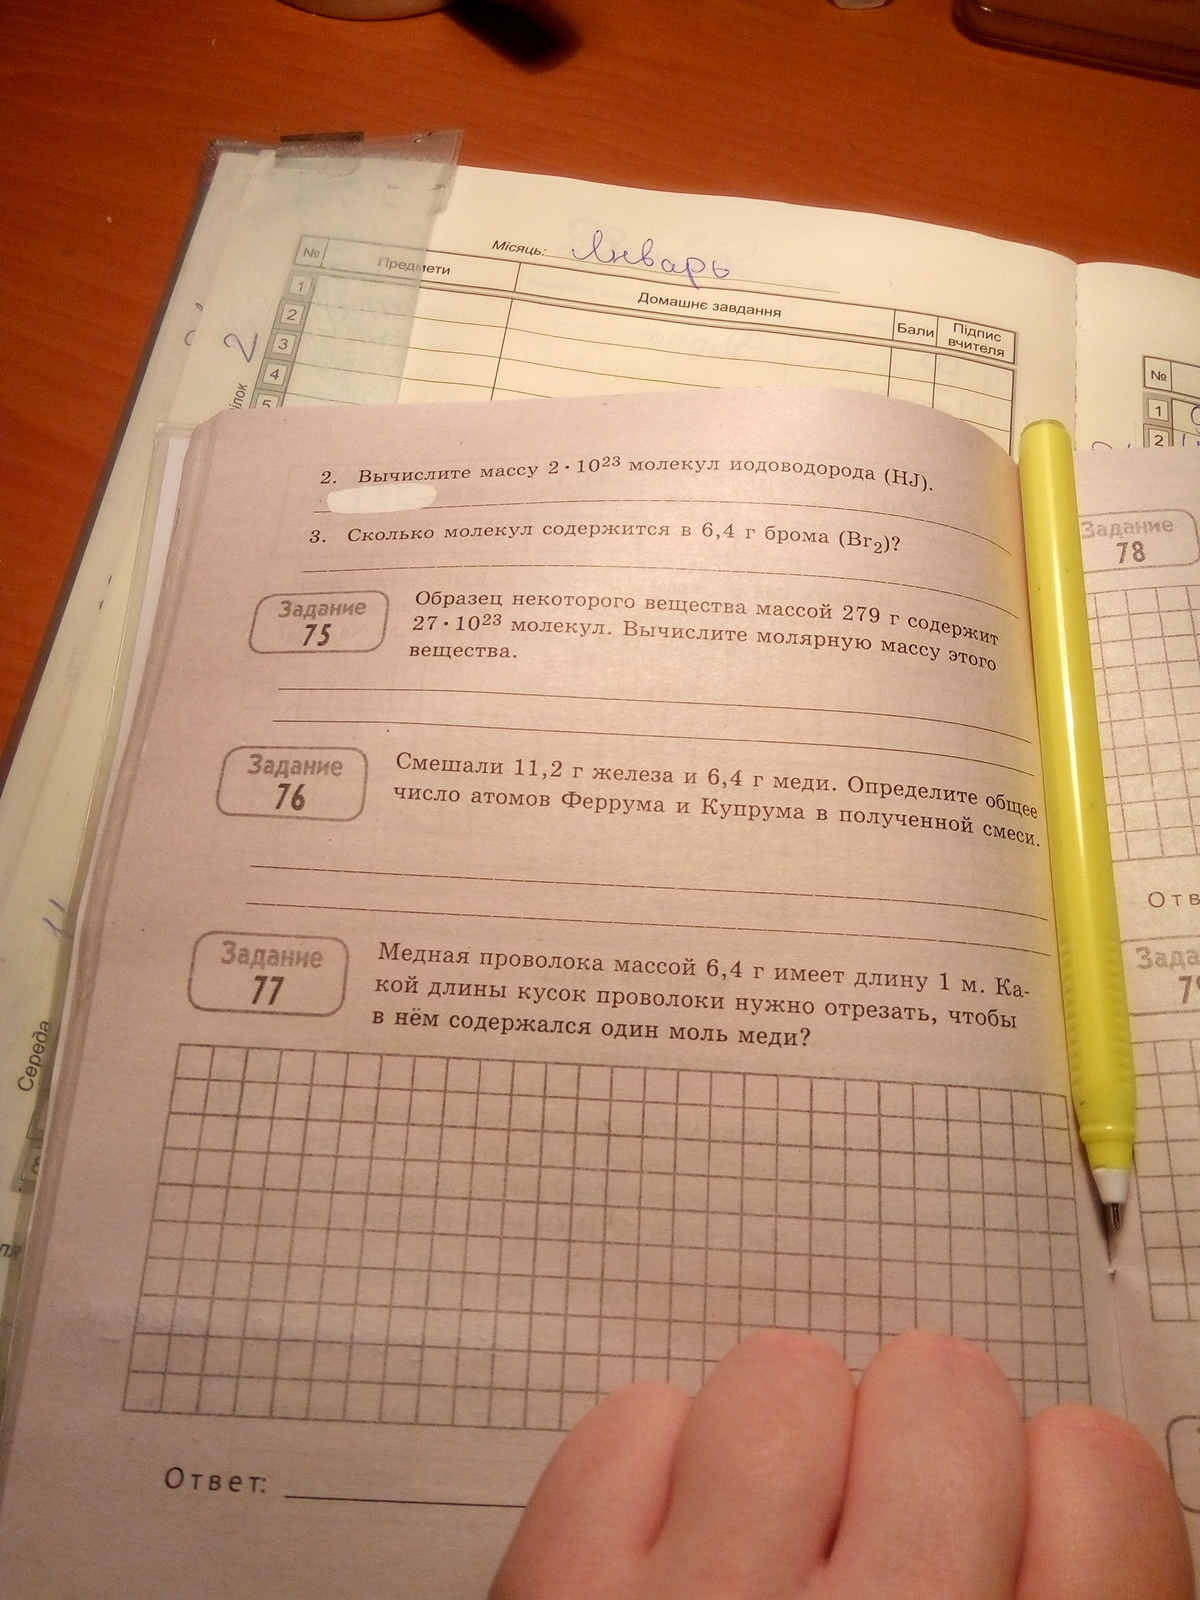 Місяць: Январь
№ Предмети Домашнє завдання Бали Підпис вчителя
1
2
3
4
5
2
Середа
№
1
2
2. Вычислите массу 2 · 10²³ молекул иодоводорода (HJ).
3. Сколько молекул содержится в 6,4 г брома (Br₂)?
Задание
75
Образец некоторого вещества массой 279 г содержит
27 · 10²³ молекул. Вычислите молярную массу этого
вещества.
Задание
76
Смешали 11,2 г железа и 6,4 г меди. Определите общее
число атомов Феррума и Купрума в полученной смеси.
Задание
77
Медная проволока массой 6,4 г имеет длину 1 м. Ка-
кой длины кусок проволоки нужно отрезать, чтобы
в нём содержался один моль меди?
Ответ:
Задание
78